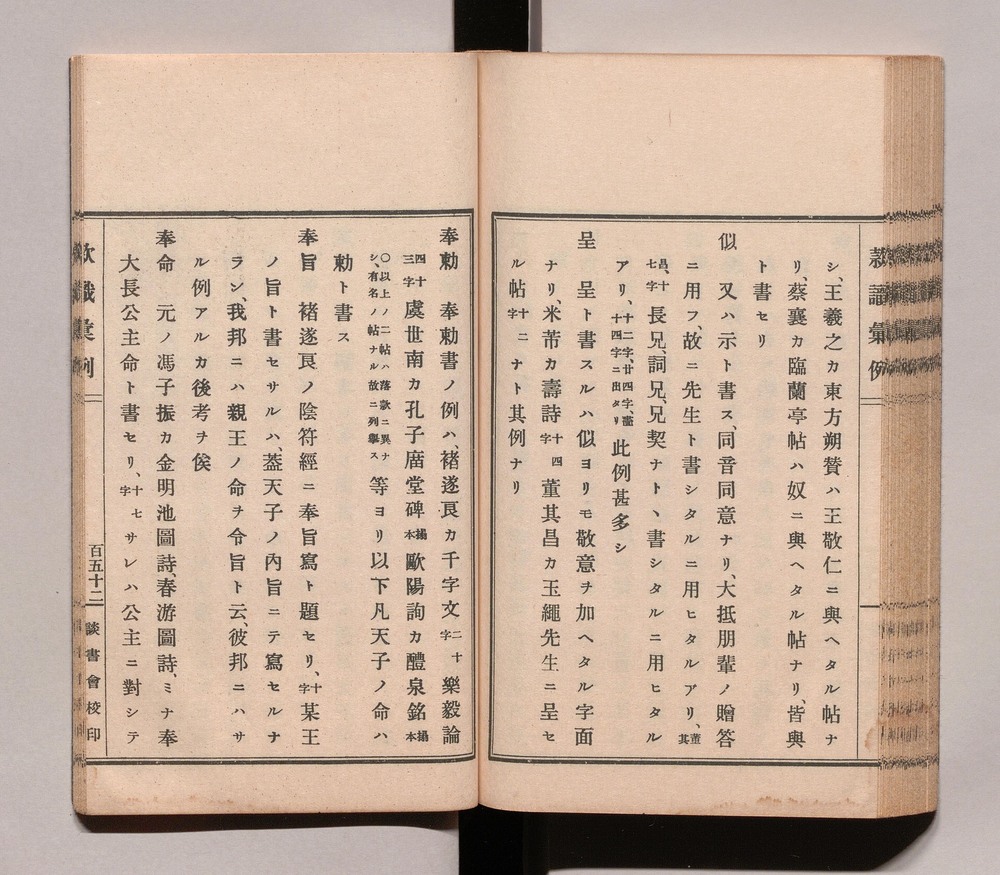 シ、王羲之カ東方朔賛ハ王敬仁ニ與ヘタル帖ナ
リ、蔡襄カ臨蘭亭帖ハ奴ニ與ヘタル帖ナリ、皆與
ト書セリ
似 又ハ示ト書ス、同音同意ナリ、大抵朋輩ノ贈答
ニ用フ、故ニ先生ト書シタルニ用ヒタルアリ、董其
昌、十七字 長兄、詞兄、兄契ナト、書シタルニ用ヒタル
アリ、十二字、廿四字、十四字ニ出タリ 此例甚多シ
呈 呈ト書スルハ似ヨリモ敬意ヲ加ヘタル字面
ナリ、米芾カ壽詩十四字 董其昌カ玉繩先生ニ呈セ
ル帖十二字 ニナト其例ナリ
奉勅 奉勅書ノ例ハ、褚遂良カ千字文二十字 樂毅論
四十三字 虞世南カ孔子廟堂碑搨本 歐陽詢カ醴泉銘搨本
〇以上ノ二帖ハ落款ニ異ナシ、有名ノ帖ナル故ニ列擧ス 等ヨリ以下凡天子ノ命ハ
勅ト書ス
奉旨 褚遂良ノ陰符經ニ奉旨寫ト題セリ、十字 某王
ノ旨ト書セサルハ、葢天子ノ內旨ニテ寫セルナ
ラン、我邦ニハ親王ノ命ヲ令旨ト云、彼邦ニハサ
ル例アルカ後考ヲ俟
奉命 元ノ馮子振カ金明池圖詩、春游圖詩、ミナ奉
大長公主命ト書セリ、十七字 サレハ公主ニ對シテ
百五十二
談書會校印